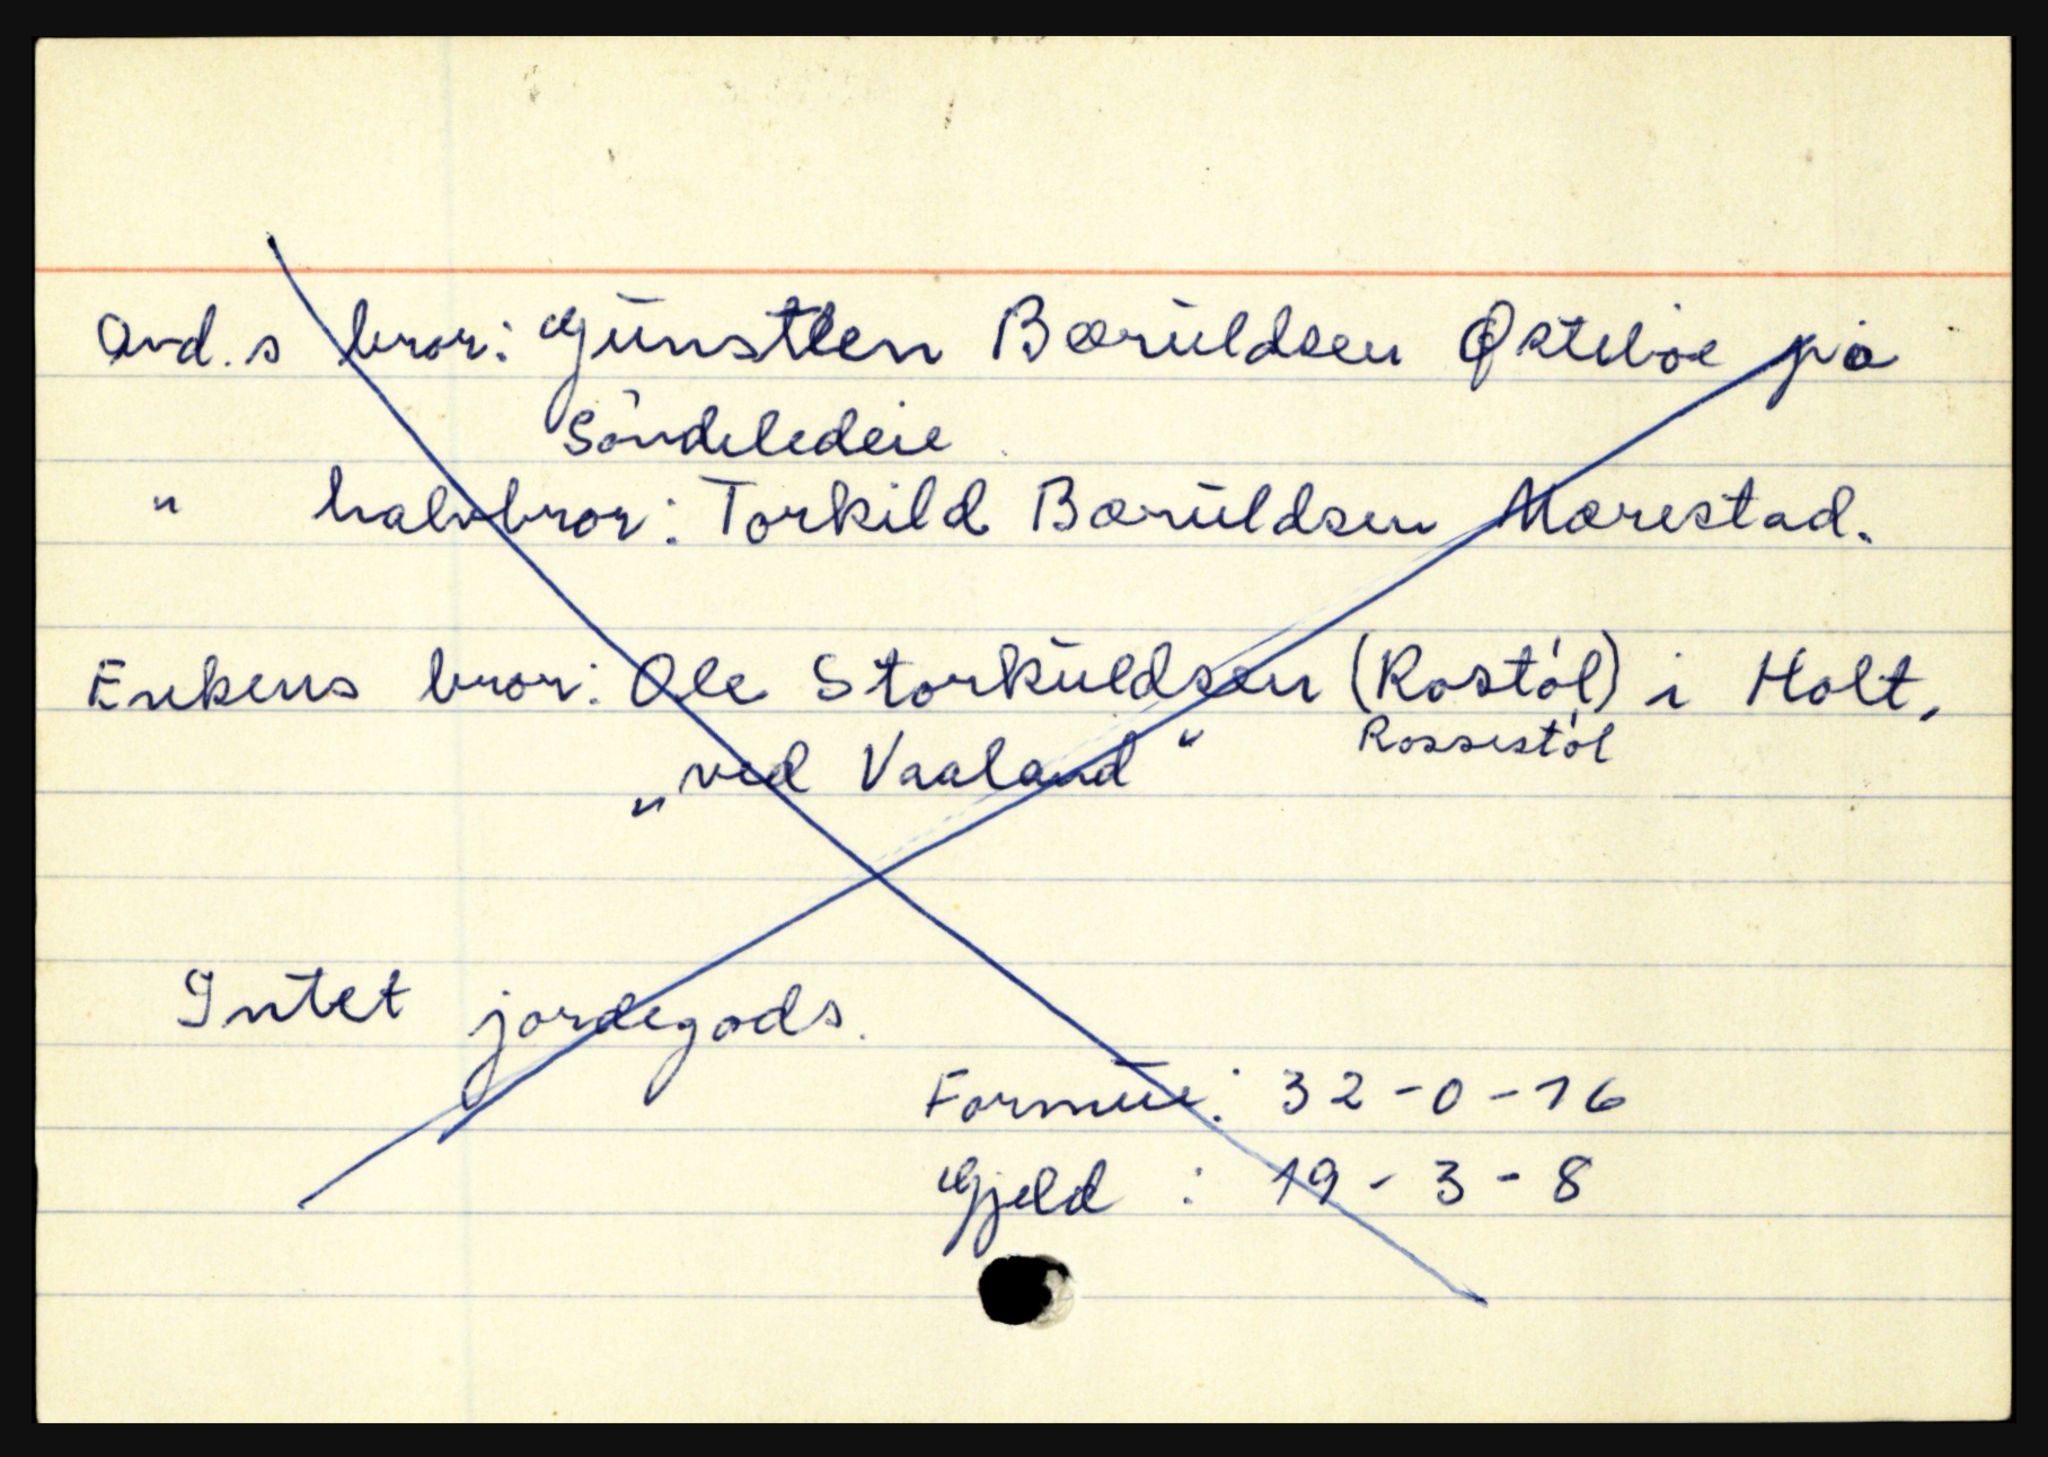 Avd.s bror: Gunsteen Børuldsen Østebøe på
Söndeledeie
" halvbror: Torkild Børuldsen Mørestad.
Enkens bror: Ole Storkuldsen (Rostöl) i Holt,
Rossestöl
„ved Vaaland"
Intet jordegods.
Formue: 32-0-16
Gjeld : 19-3-8